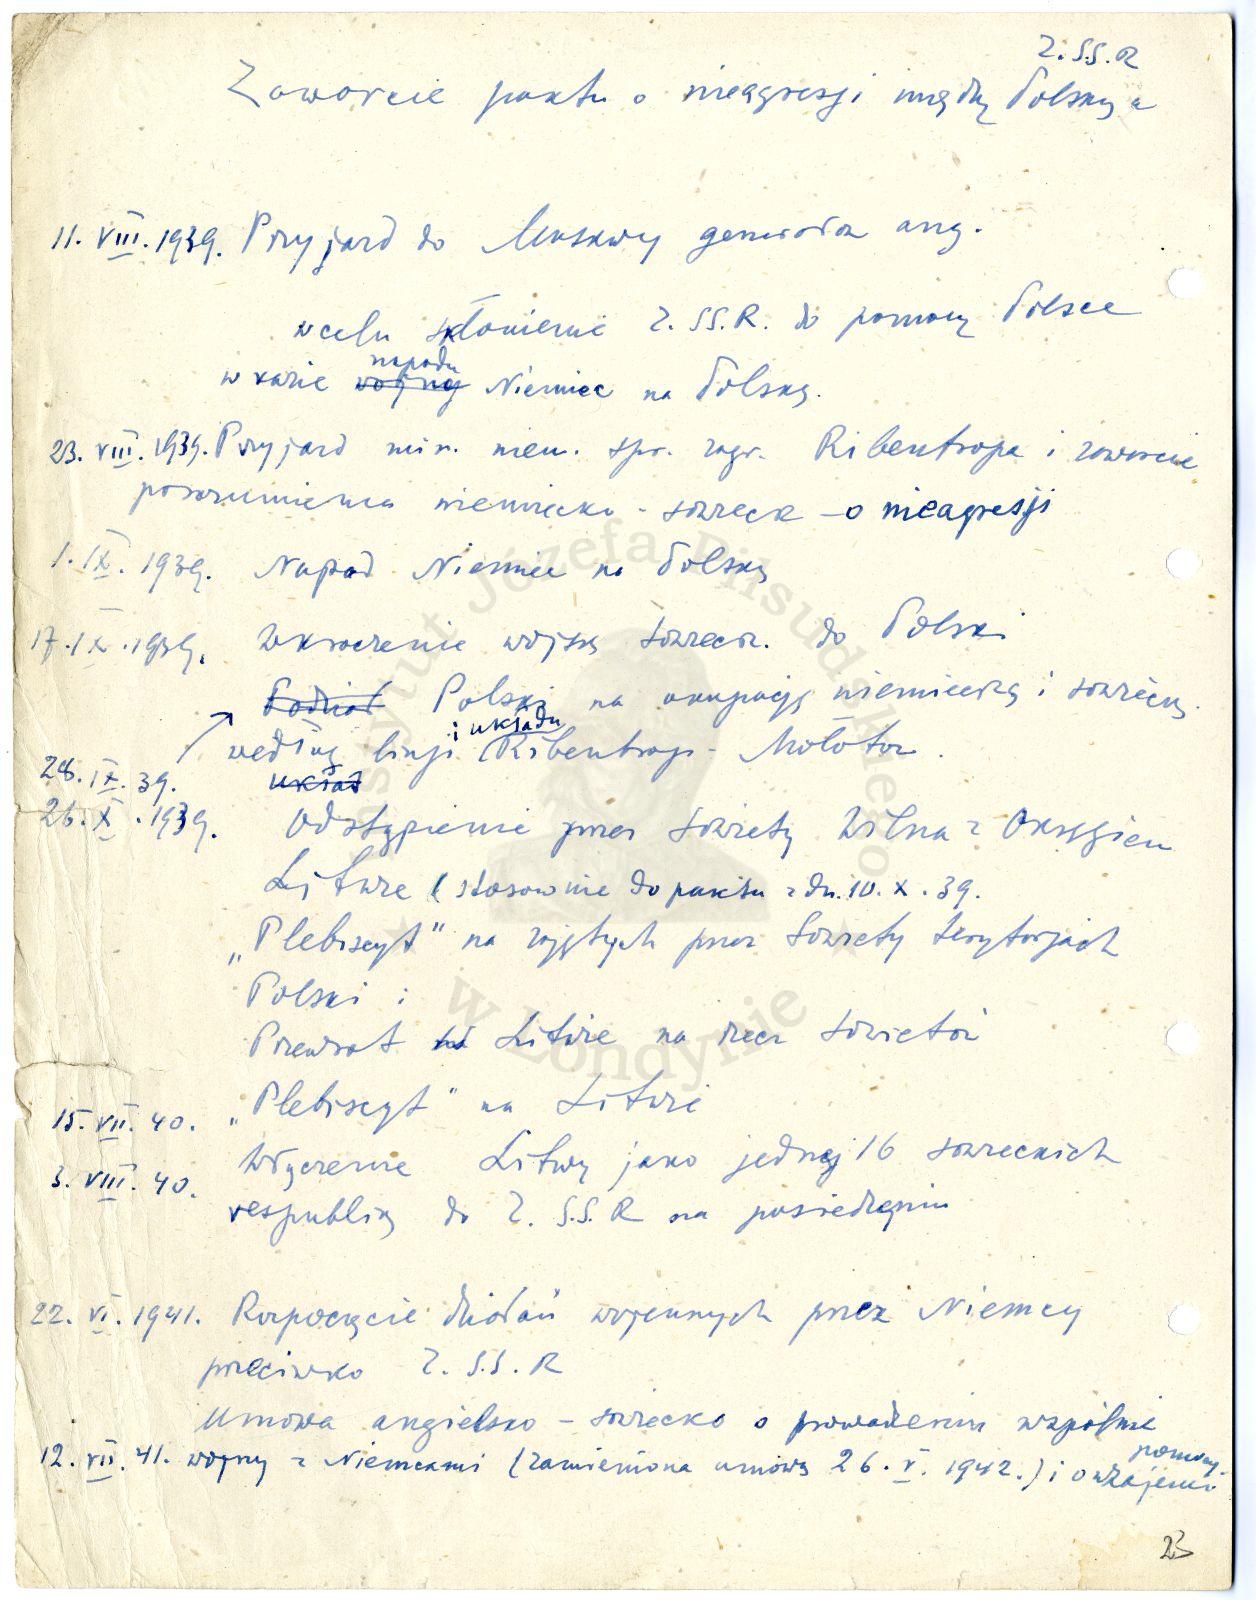 Z.S.S.R
Zawarcie paktu o nieagresji między Polską a
11. VIII. 1939. Przyjazd do Moskwy generała ang.
w celu skłonienia Z.SS.R. do pomocy Polsce
napadu
w razie wojny Niemiec na Polskę.
23. VIII. 1939. Przyjazd min. niem. spr. zagr. Ribentropa i zawarcie
porozumienia niemiecko - sowieck — o nieagresji
1. IX. 1939. Napad Niemiec na Polskę
17. IX. 1939. Wkroczenie wojsk sowieck. do Polski
Podział Polski na okupację niemiecką i sowiecką.
i układu
według linji Ribentrop - Mołotow.
28. IX. 39. układ
26. X. 1939. Odstąpienie przez Sowiety Wilna z Okręgiem
Litwie ( stosownie do paktu z dn. 10. X. 39.
„Plebiscyt" na zajętych przez Sowiety terytorjach
Polski i
Przewrót na Litwie na rzecz Sowietów
15. VII. 40. „Plebiscyt" na Litwie
3. VIII. 40. Włączenie Litwy jako jednej 16 sowieckich
respublik do Z.S.S.R na posiedzeniu
22. VI. 1941. Rozpoczęcie działań wojennych przez Niemcy
przeciwko Z.S.S.R
Umowa angielsko - sowiecka o prowadzeniu wspólnie
12. VII. 41. wojny z Niemcami (zamieniona umową 26. V. 1942.) i o wzajemn.
pomocy.
23
Instytut Józefa Piłsudskiego
w Londynie